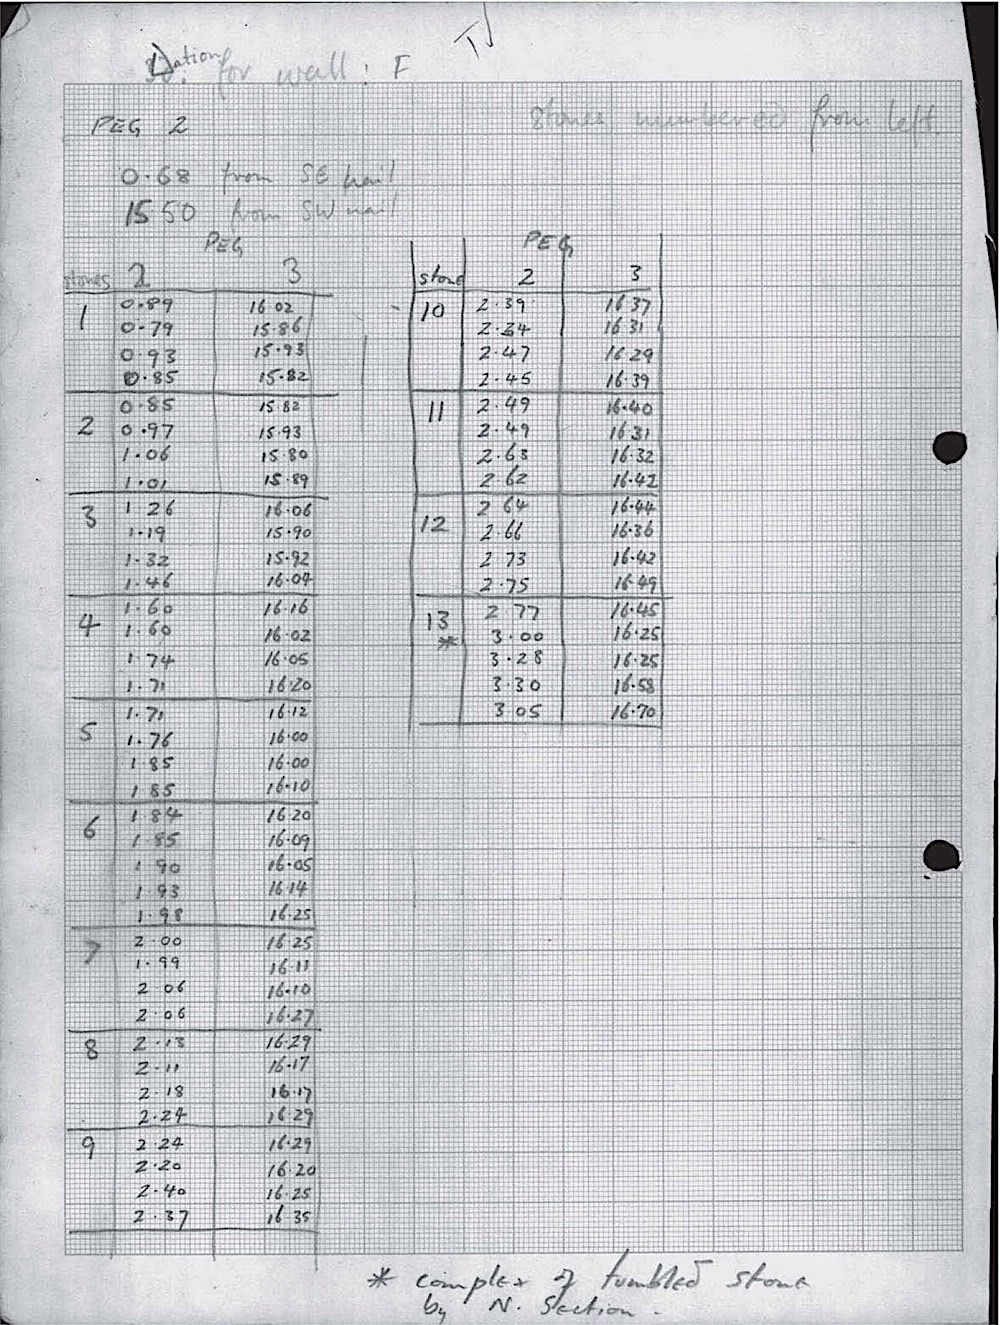 for wall: F
PEG 2
Stones numbered from left.
0.68 from SE nail
15 50 from SW nail
PEG
stones 2 3
1 0.89 16 02
0.79 15.86
0.93 15.93
0.85 15.82
2 0.85 15 82
0.97 15.93
1.06 15.80
1.01 15.89
3 1 26 16.06
1.19 15.90
1.32 15.92
1.46 16.04
4 1.60 16.16
1.60 16.02
1.74 16.05
1.71 16.20
5 1.71 16.12
1.76 16.00
1.85 16.00
1.85 16.10
6 1.84 16.20
1.85 16.09
1.90 16.05
1.93 16.14
1.98 16.25
7 2.00 16 25
1.99 16.11
2 06 16.10
2.06 16.27
8 2.13 16.29
2.11 16.17
2.18 16.17
2.24 16.29
9 2.24 16.29
2.20 16.20
2.40 16.25
2.37 16.35
PEG
stone 2 3
10 2.39 16 37
2.34 16 31
2.47 16 29
2.45 16.39
11 2.49 16.40
2.49 16 31
2.63 16.32
2 62 16.42
12 2 64 16.44
2.66 16.36
2 73 16.42
2.75 16.49
13 2 77 16.45
* 3.00 16.25
3.28 16.25
3.30 16.58
3 05 16.70
* complex of tumbled stone
by N. Section.